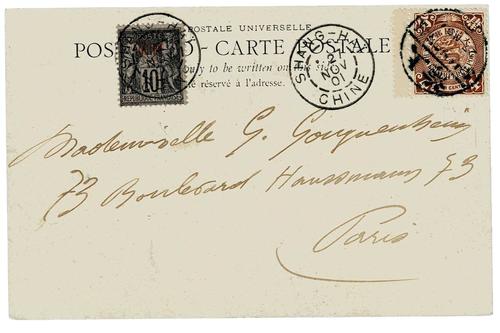 POSTALE UNIVERSELLE
CARTE POSTALE
only to be written on the
côté réservé à l'adresse.
POSTE
10
SHANG-HAI
2
NOV
01
CHINE
CENT
Mademoiselle G. Gougenheim
73 Boulevard Haussmann 73
Paris